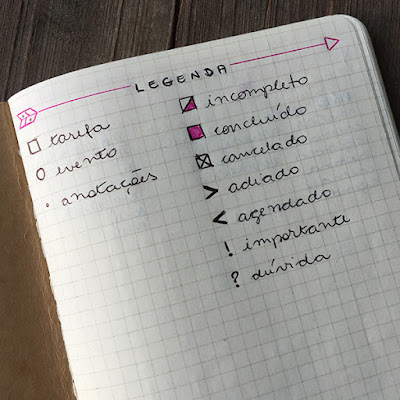 LEGENDA
tarefa
evento
anotações
incompleto
concluído
cancelado
> adiado
< agendado
! importante
? dúvida